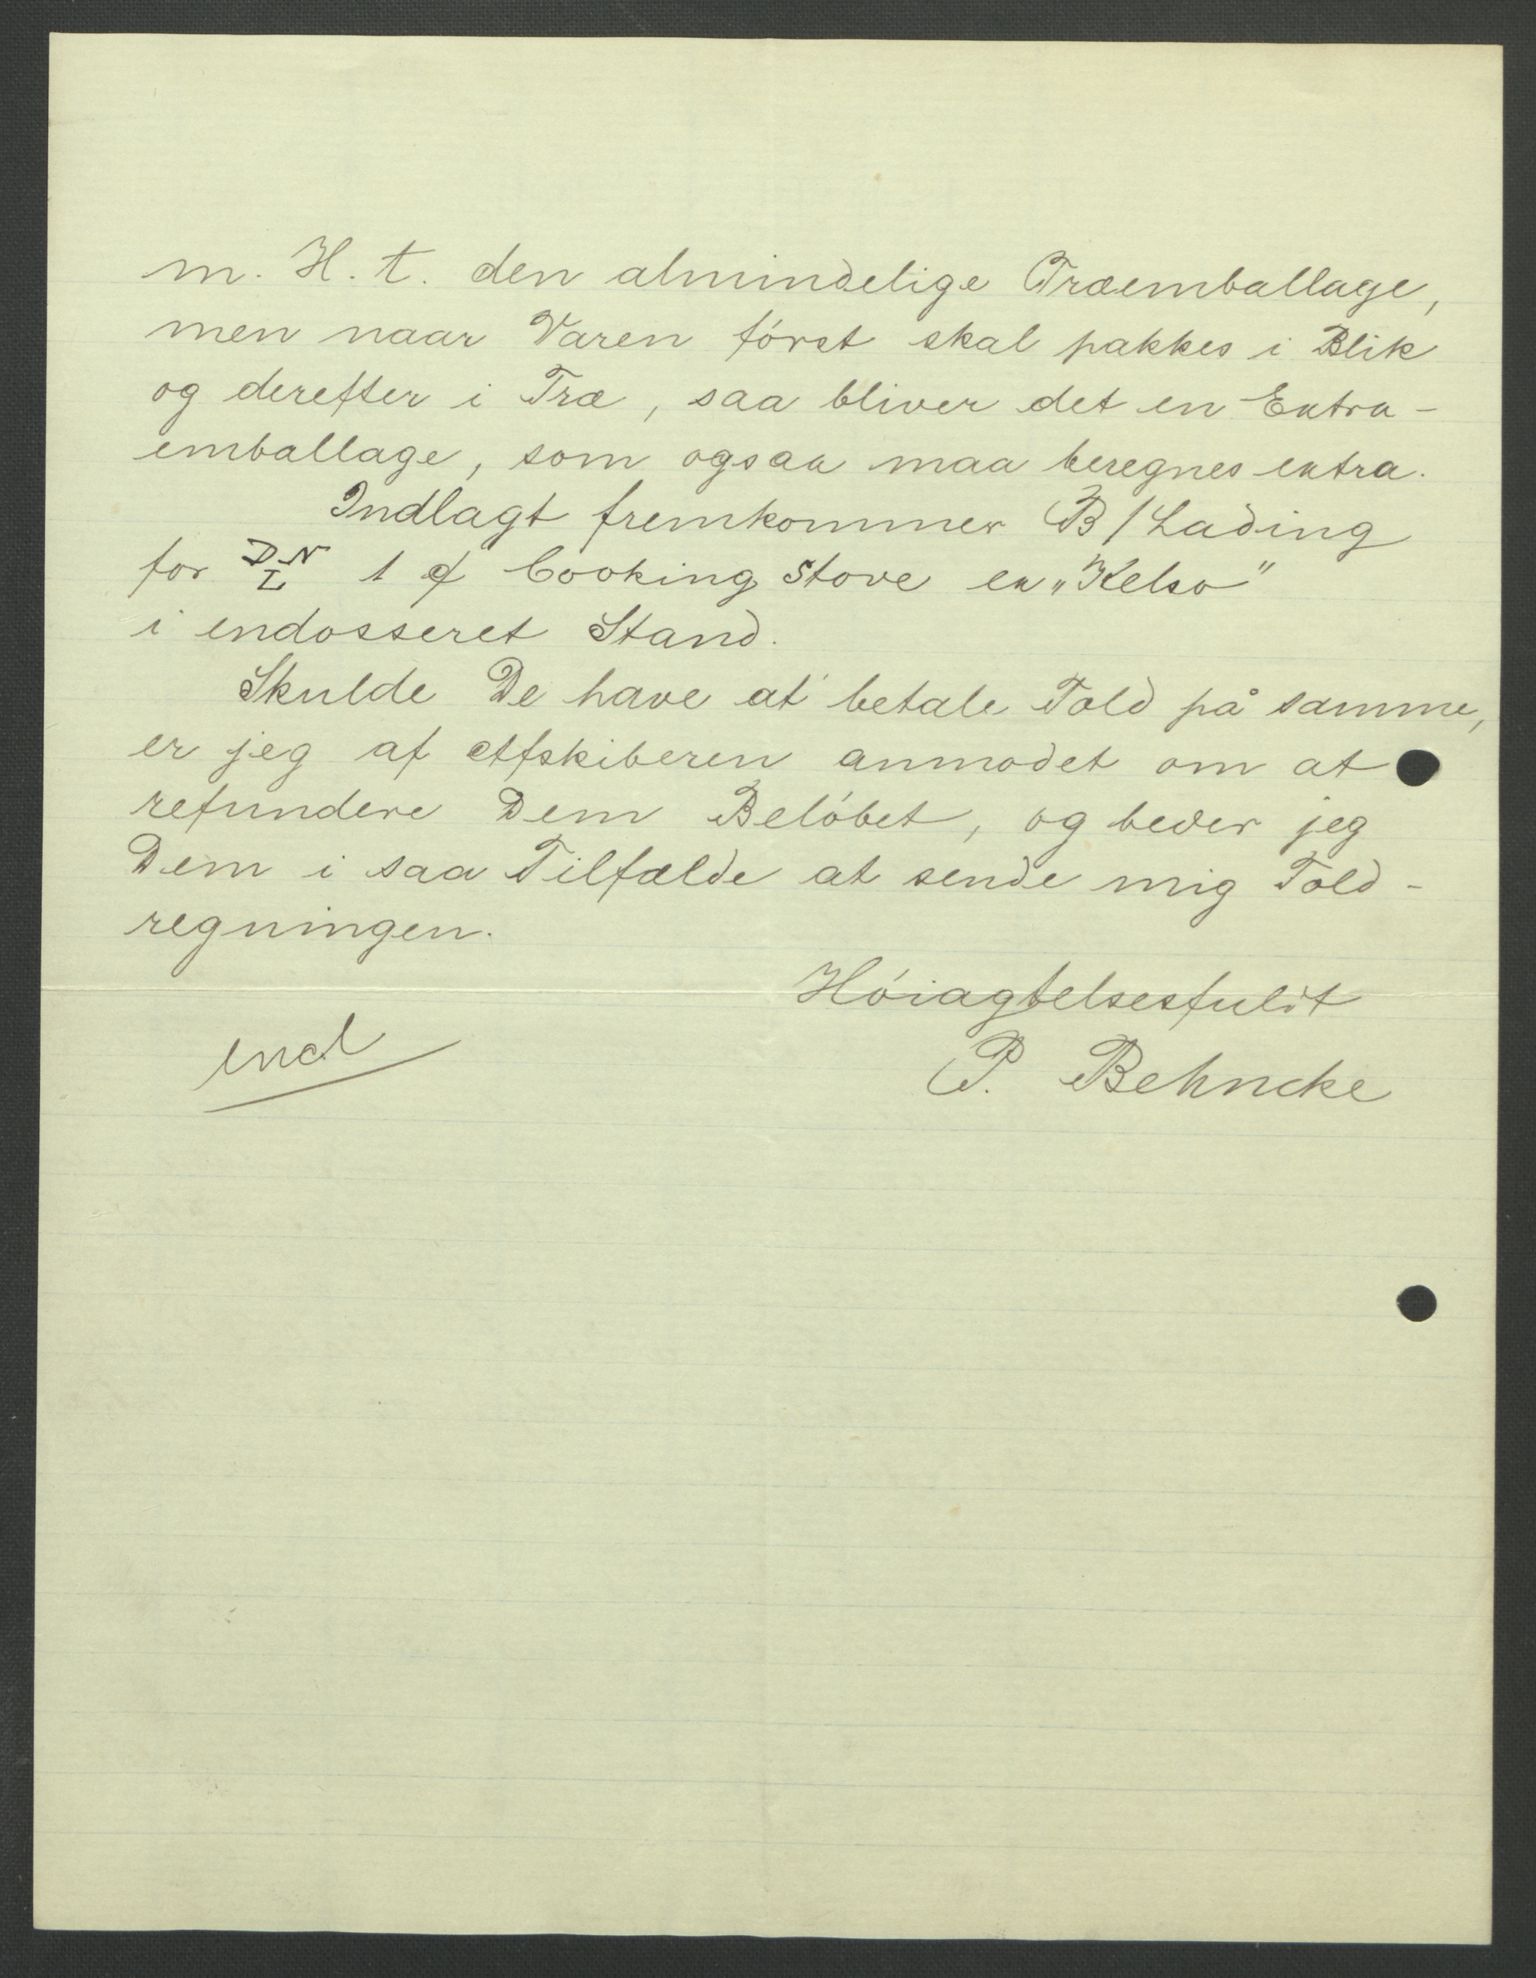 m. H. t. den almindelige Træemballage,
men naar Varen først skal pakkes i Blik
og derefter i Træ, saa bliver det en Extra-
emballage, som ogsaa maa beregnes extra.
Indlagt fremkommer B/Lading
for D.N. L 1 Cooking Stove ex „Kelso"
i endosseret Stand.
Skulde De have at betale Told på samme,
er jeg af Afskiberen anmodet om at
refundere Dem Beløbet, og beder jeg
Dem i saa Tilfælde at sende mig Told-
regningen.
Høiagtelsesfuldt
P. Behncke
encl